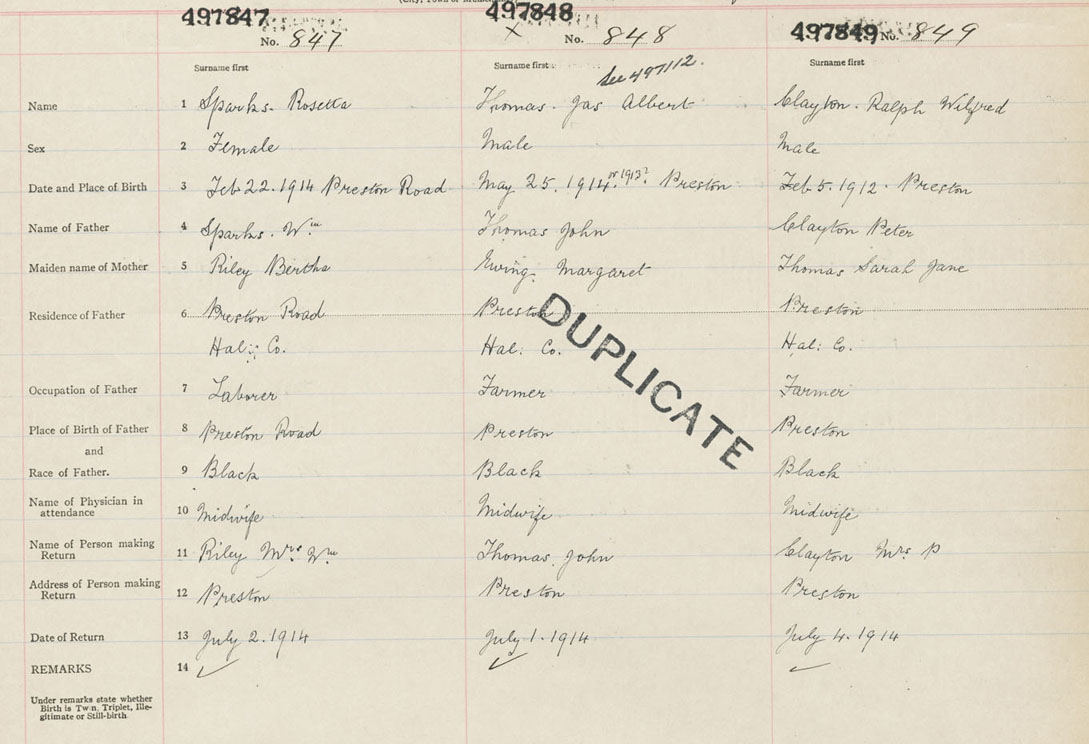 497847 497848 497849
No. 847 No. 848 No. 849
Surname first Surname first Surname first
See 497112.
Name 1 Sparks. Rosetta Thomas. Jas Albert Clayton. Ralph Wilfred
Sex 2 Female Male Male
Date and Place of Birth 3 Feb 22. 1914 Preston Road May 25. 1914 or 1913? Preston Feb 5. 1912. Preston
Name of Father 4 Sparks. Wm Thomas John Clayton Peter
Maiden name of Mother 5 Riley Bertha Ewing Margaret Thomas Sarah Jane
Residence of Father 6 Preston Road Preston Preston
Hal: Co. Hal: Co. Hal: Co.
DUPLICATE
Occupation of Father 7 Laborer Farmer Farmer
Place of Birth of Father 8 Preston Road Preston Preston
and
Race of Father. 9 Black Black Black
Name of Physician in
attendance 10 Midwife Midwife Midwife
Name of Person making
Return 11 Riley Mrs. Wm Thomas, John Clayton Mrs P
Address of Person making
Return 12 Preston Preston Preston
Date of Return 13 July 2. 1914 July 1. 1914 July 4. 1914
REMARKS 14
Under remarks state whether
Birth is Twin, Triplet, Ille-
gitimate or Still-birth